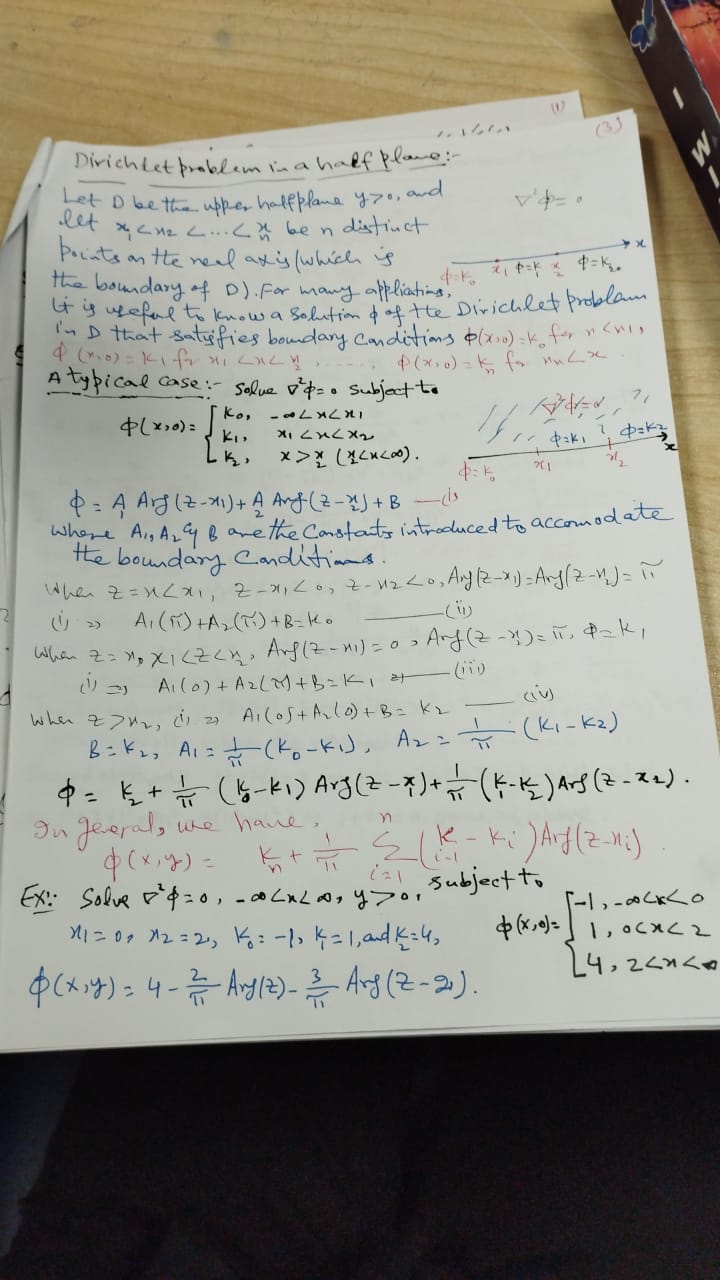 (1)
(3)
Dirichlet problem in a half plane:-
Let D be the upper halfplane y>0, and
let x₁<x₂<...<xₙ be n distinct
points on the real axis (which is
the boundary of D). For many applications,
it is useful to know a solution ϕ of the Dirichlet problem
in D that satisfies boundary conditions ϕ(x,0)=k₀ for x<x₁,
ϕ(x,0)=k₁ for x₁<x<x₂ ........ ϕ(x,0)=kₙ for xₙ<x.
∇²ϕ=0
x
ϕ=k₀ x₁ ϕ=k₁ x₂ ϕ=k₂
A typical case:- Solve ∇²ϕ=0 subject to
ϕ(x,0)= { k₀, -∞<x<x₁
k₁, x₁<x<x₂
k₂, x>x₂ (x₂<x<∞).
∇²ϕ=0
ϕ=k₁ ϕ=k₂
x
ϕ=k₀ x₁ x₂
ϕ = A₁ Arg(z-x₁)+A₂ Arg(z-x₂)+B —(i)
where A₁, A₂ & B are the constants introduced to accomodate
the boundary conditions.
When z=x<x₁, z-x₁<0, z-x₂<0, Arg(z-x₁)=Arg(z-x₂)=π
(i) ⇒ A₁(π)+A₂(π)+B=k₀ ——(ii)
When z=x, x₁<z<x₂, Arg(z-x₁)=0, Arg(z-x₂)=π, ϕ=k₁
(i) ⇒ A₁(0)+A₂(π)+B=k₁ —(iii)
When z>x₂, (i) ⇒ A₁(0)+A₂(0)+B=k₂ —(iv)
B=k₂, A₁=1/π (k₀-k₁), A₂=1/π (k₁-k₂)
ϕ= k₂+1/π (k₀-k₁) Arg(z-x₁)+1/π (k₁-k₂) Arg(z-x₂).
In general, we have,
ϕ(x,y) = kₙ+1/π ∑ⁿᵢ₌₁ (kᵢ₋₁-kᵢ) Arg(z-xᵢ).
Ex:- Solve ∇²ϕ=0, -∞<x<∞, y>0, subject to
ϕ(x,0)= { -1, -∞<x<0
1, 0<x<2
4, 2<x<∞
x₁=0, x₂=2, k₀=-1, k₁=1, and k₂=4,
ϕ(x,y)=4-2/π Arg(z)-3/π Arg(z-2).
I
W